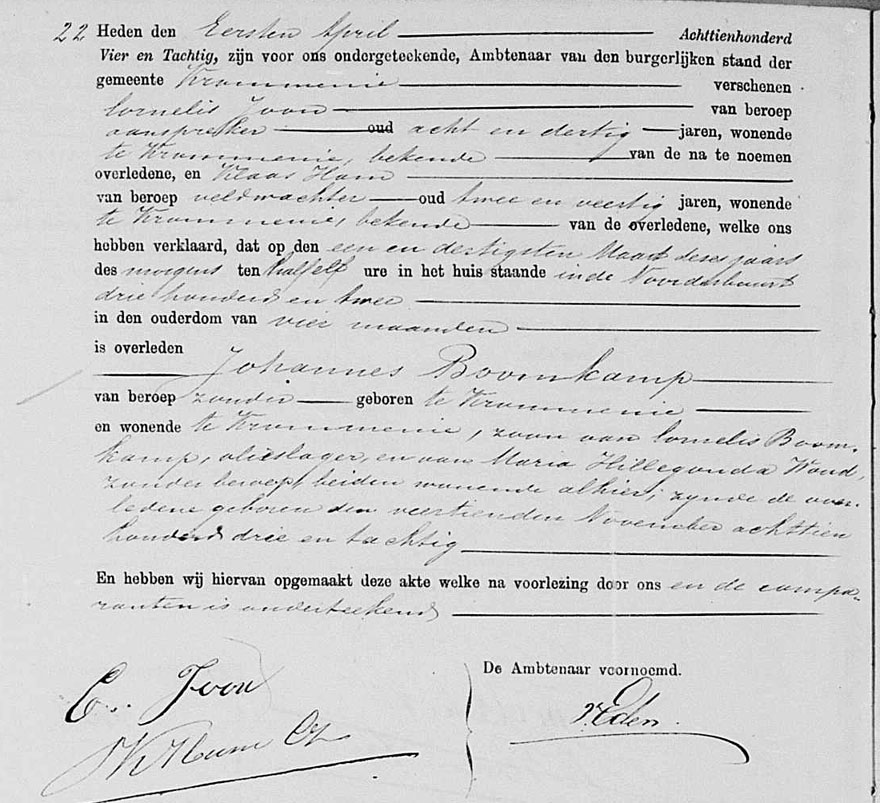 22 Heden den Eersten April Achttienhonderd
Vier en Tachtig, zijn voor ons ondergeteekende, Ambtenaar van den burgerlijken stand der
gemeente Krommenie verschenen
Cornelis Joon van beroep
aanspreker oud acht en dertig jaren, wonende
te Krommenie, bekende van de na te noemen
overledene, en Klaas Ham
van beroep veldwachter oud twee en veertig jaren, wonende
te Krommenie, bekende van de overledene, welke ons
hebben verklaard, dat op den een en dertigsten Maart dezes jaars
des morgens ten half elf ure in het huis staande in de Noorderbuurt
drie honderd en twee
in den ouderdom van vier maanden
is overleden
Johannes Boomkamp
van beroep zonder geboren te Krommenie
en wonende te Krommenie, zoon van Cornelis Boom-
kamp, olieslager, en van Maria Hillegonda Woud,
zonder beroep, beiden wonende alhier; zynde de over-
ledene geboren den veertienden November achttien
honderd drie en tachtig
En hebben wij hiervan opgemaakt deze akte welke na voorlezing door ons en de compa-
ranten is onderteekend
De Ambtenaar voornoemd.
C. Joon
K Ham